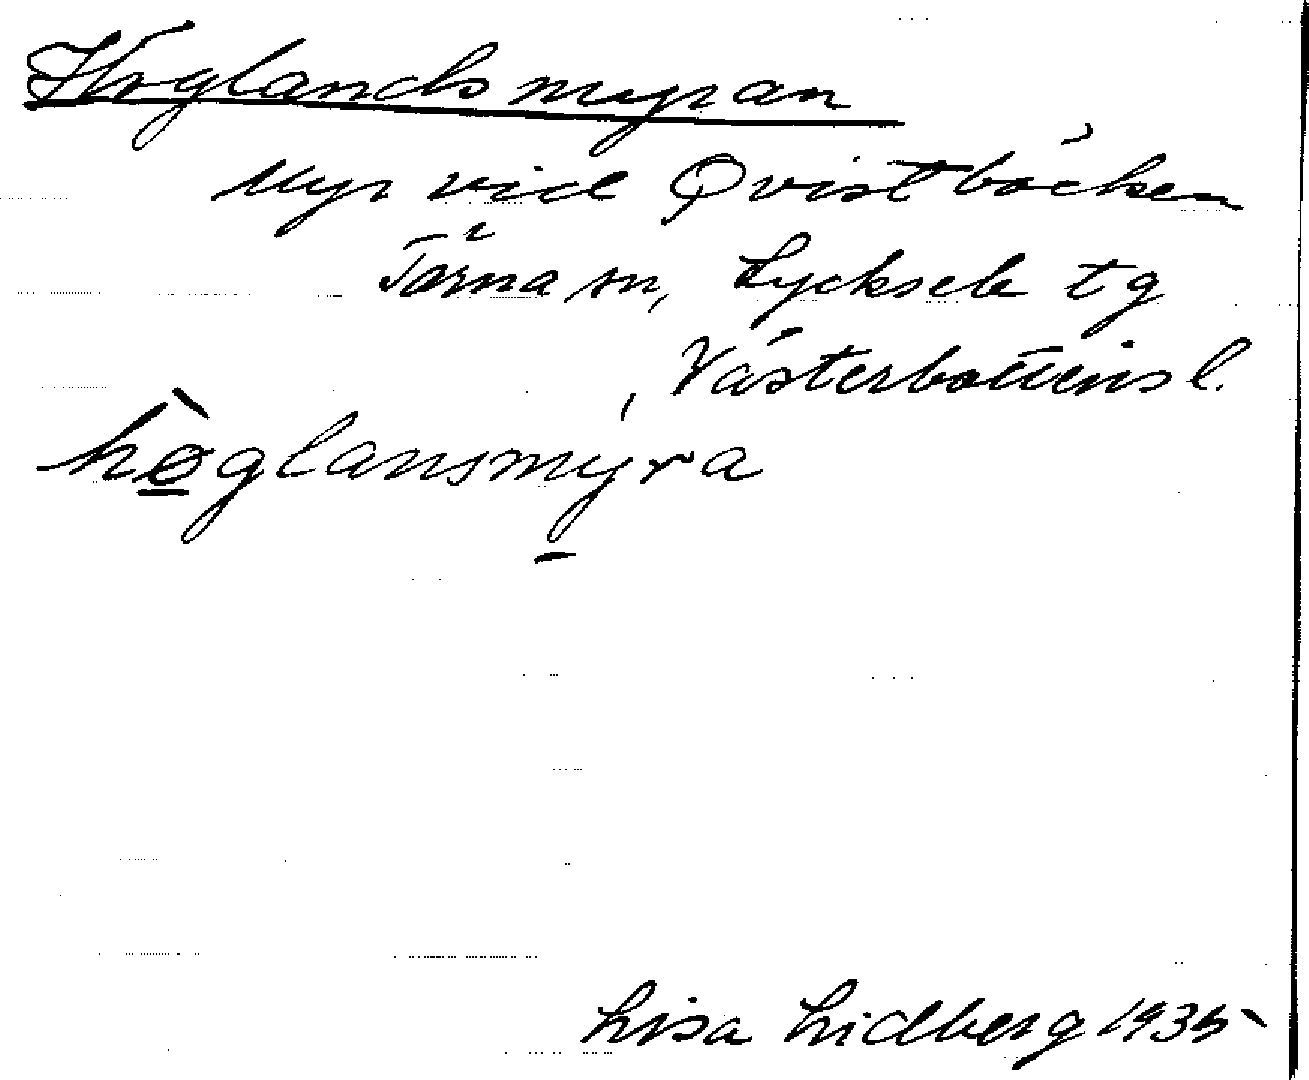 Höglandsmyran
Myr vid Qvistbäcken
Tärna sn, Lycksele tg
Västerbottens l.
hø̱̀glansmý̱ra
Lisa Lidberg 1935